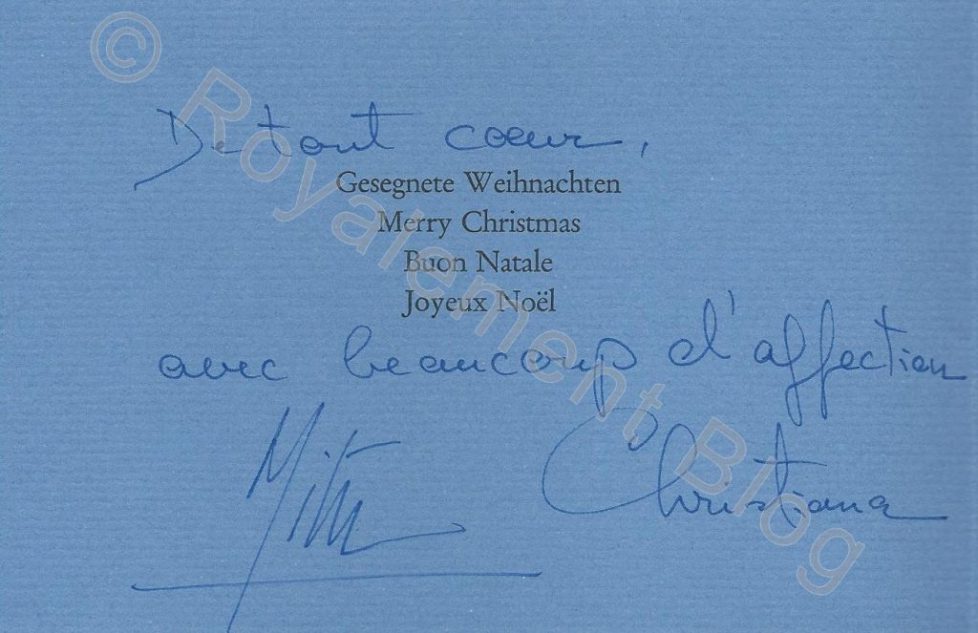 De tout cœur,
Gesegnete Weihnachten
Merry Christmas
Buon Natale
Joyeux Noël
avec beaucoup d'affection
Christiana
© Royalement Blog